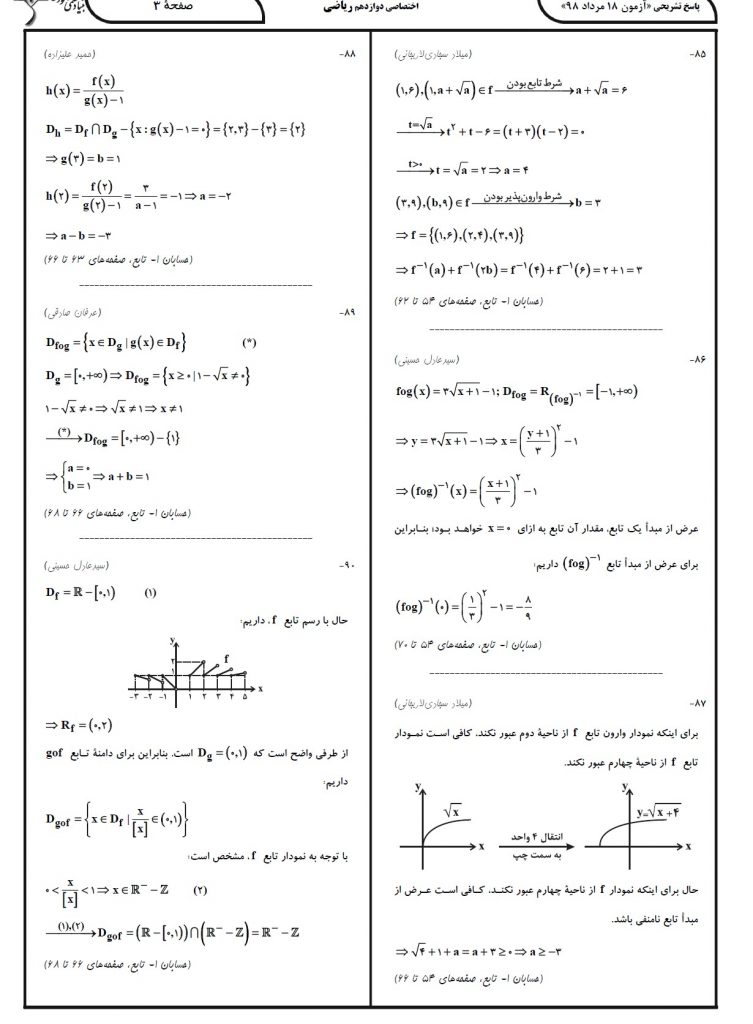 پاسخ تشریحی «آزمون ۱۸ مرداد ۹۸»
اختصاصی دوازدهم ریاضی
صفحهٔ ۳
۸۵- (میلاد سجادی‌لاریجانی)
(۱,۶),(۱,a+√a)∈f شرط تابع بودن → a+√a=۶
t=√a → t²+t−۶=(t+۳)(t−۲)=۰
t>۰ → t=√a=۲⇒a=۴
(۳,۹),(b,۹)∈f شرط وارون‌پذیر بودن → b=۳
⇒f={(۱,۶),(۲,۴),(۳,۹)}
⇒f⁻¹(a)+f⁻¹(۲b)=f⁻¹(۴)+f⁻¹(۶)=۲+۱=۳
(حسابان ۱- تابع، صفحه‌های ۵۴ تا ۶۲)
۸۶- (سیدعادل حسینی)
fog(x)=۳√(x+۱)−۱; D_fog=R_(fog)⁻¹=[−۱,+∞)
⇒y=۳√(x+۱)−۱⇒x=((y+۱)/۳)²−۱
⇒(fog)⁻¹(x)=((x+۱)/۳)²−۱
عرض از مبدأ یک تابع، مقدار آن تابع به ازای x=۰ خواهد بود؛ بنابراین
برای عرض از مبدأ تابع (fog)⁻¹ داریم:
(fog)⁻¹(۰)=(۱/۳)²−۱=−۸/۹
(حسابان ۱- تابع، صفحه‌های ۵۴ تا ۷۰)
۸۷- (میلاد سجادی‌لاریجانی)
برای اینکه نمودار وارون تابع f از ناحیهٔ دوم عبور نکند، کافی است نمودار
تابع f از ناحیهٔ چهارم عبور نکند.
y
√x
x
انتقال ۴ واحد
به سمت چپ
y
y=√(x+۴)
x
حال برای اینکه نمودار f از ناحیهٔ چهارم عبور نکند، کافی است عرض از
مبدأ تابع نامنفی باشد.
⇒√۴+۱+a=a+۳≥۰⇒a≥−۳
(حسابان ۱- تابع، صفحه‌های ۵۴ تا ۶۶)
۸۸- (حمید علیزاده)
h(x)=f(x)/(g(x)−۱)
D_h=D_f∩D_g−{x:g(x)−۱=۰}={۲,۳}−{۳}={۲}
⇒g(۳)=b=۱
h(۲)=f(۲)/(g(۲)−۱)=۳/(a−۱)=−۱⇒a=−۲
⇒a−b=−۳
(حسابان ۱- تابع، صفحه‌های ۶۳ تا ۶۶)
۸۹- (عرفان صادقی)
D_fog={x∈D_g|g(x)∈D_f} (*)
D_g=[۰,+∞)⇒D_fog={x≥۰|۱−√x≠۰}
۱−√x≠۰⇒√x≠۱⇒x≠۱
(*) → D_fog=[۰,+∞)−{۱}
⇒{a=۰, b=۱⇒a+b=۱
(حسابان ۱- تابع، صفحه‌های ۶۶ تا ۶۸)
۹۰- (سیدعادل حسینی)
D_f=ℝ−[۰,۱) (۱)
حال با رسم تابع f، داریم:
y
۲
۱
f
−۳ −۲ −۱ ۱ ۲ ۳ ۴ ۵ x
⇒R_f=(۰,۲)
از طرفی واضح است که D_g=(۰,۱) است. بنابراین برای دامنهٔ تابع gof
داریم:
D_gof={x∈D_f|x/[x]∈(۰,۱)}
با توجه به نمودار تابع f، مشخص است:
۰<x/[x]<۱⇒x∈ℝ⁻−ℤ (۲)
(۱),(۲) → D_gof=(ℝ−[۰,۱))∩(ℝ⁻−ℤ)=ℝ⁻−ℤ
(حسابان ۱- تابع، صفحه‌های ۶۶ تا ۶۸)